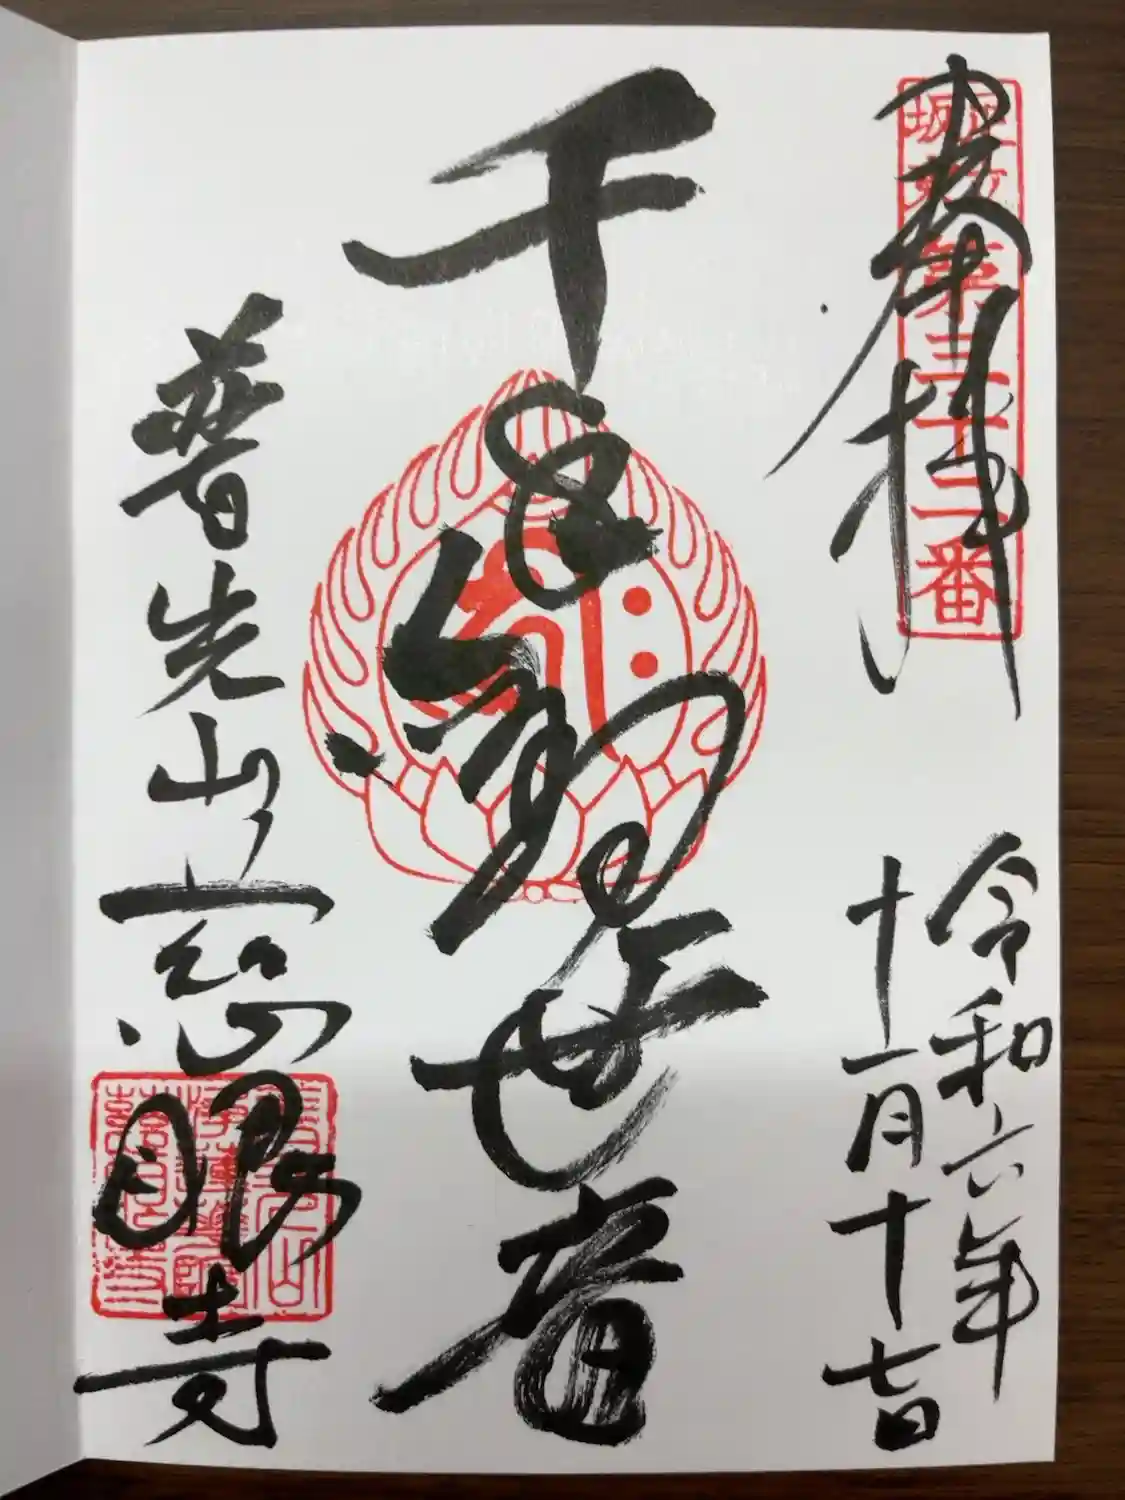 奉拝
第三十二番
令和六年
十一月十七日
千手観世音
普光山慈眼寺